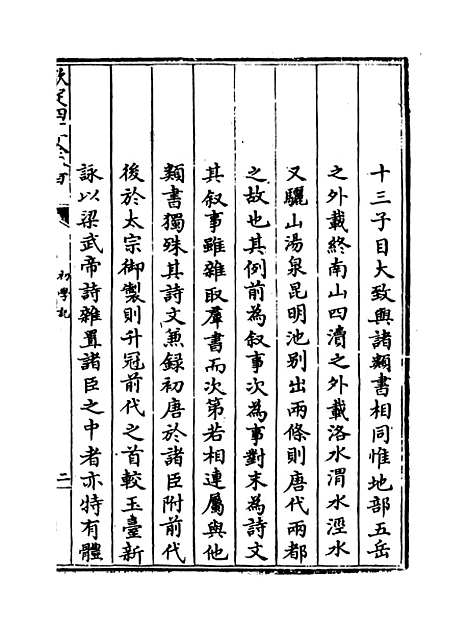 十三子目大致與諸類書相同惟地部五岳
之外載終南山四瀆之外載洛水渭水涇水
又驪山湯泉昆明池别出兩條則唐代兩都
之故也其例前為叙事次為事對末為詩文
其叙事雖雜取羣書而次第若相連屬與他
類書獨殊其詩文兼録初唐於諸臣附前代
後於太宗御製則升冠前代之首較玉臺新
詠以梁武帝詩雜置諸臣之中者亦特有體
欽定四庫全書
初學記
二